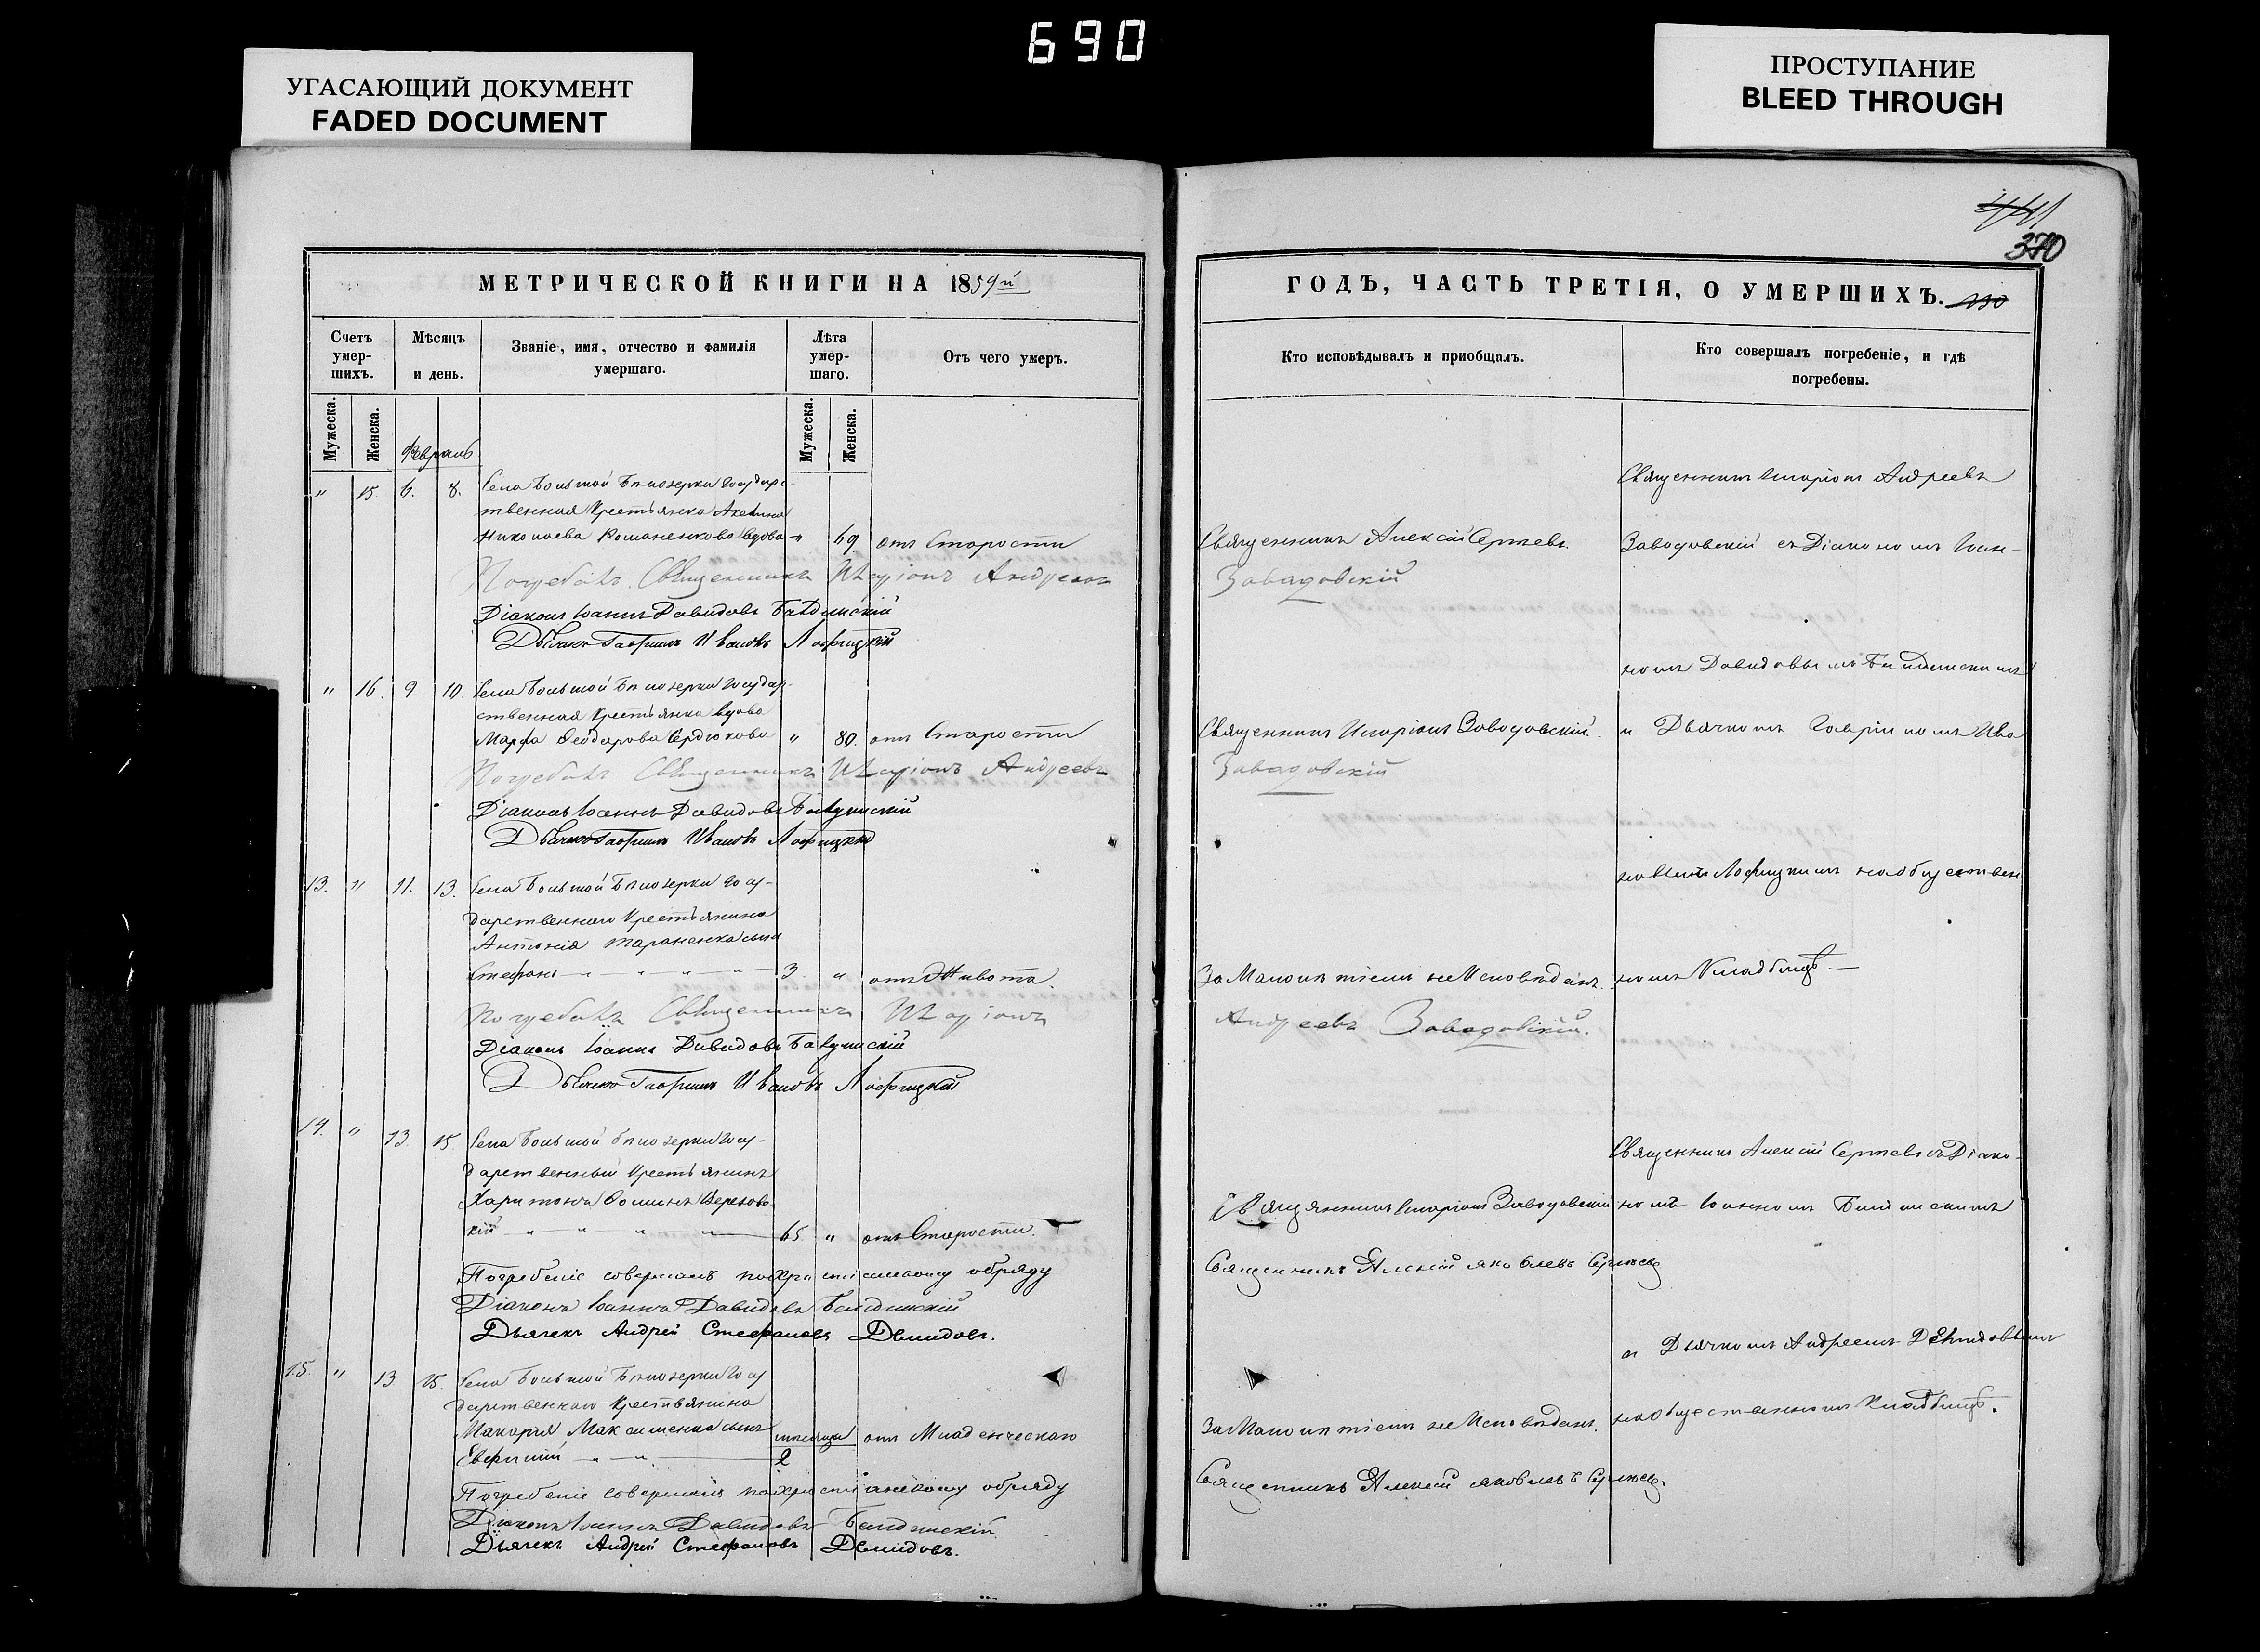 690
УГАСАЮЩИЙ ДОКУМЕНТ
FADED DOCUMENT
ПРОСТУПАНИЕ
BLEED THROUGH
370
МЕТРИЧЕСКОЙ КНИГИ НА 1859й
Счетъ умер-шихъ.
Мѣсяцъ и день.
Званіе, имя, отчество и фамилія умершаго.
Лѣта умер-шаго.
Отъ чего умеръ.
Мужеска.
Женска.
Февраль
Мужеска.
Женска.
" 15. 6. 8. Села Большой Бѣлозерки государс-
твенная Крестьянка Акелина
Николаева Романенкова вдова " 69 отъ Старости
Погребалъ Священникъ Иларіонъ Андреевъ
Діаконъ Іоаннъ Давидовъ
Дьячекъ Гавріилъ Ивановъ Лофицкій
" 16. 9 10. Села Большой Бѣлозерки государ-
ственная Крестьянка вдова
Марфа Феодорова Сердюкова " 80. отъ Старости
Погребалъ Священникъ Иларіонъ Андреевъ
Діаконъ Іоаннъ Давидовъ
Дьячекъ Гавріилъ Ивановъ Лофицкій
13. " 11. 13. Села Большой Бѣлозерки госу-
дарственнаго Крестьянина
Антонія Тараненка сынъ
Стефанъ 3 " отъ Живота.
Погребалъ Священникъ Иларіонъ
Діаконъ Іоаннъ Давидовъ
Дьячекъ Гавріилъ Ивановъ Лофицкій
14. " 13. 15. Села Большой Бѣлозерки госу-
дарственный Крестьянинъ
Харитонъ Фоминъ
кій 65 " отъ Старости.
Погребеніе совершалъ по христіанскому обряду
Діаконъ Іоаннъ Давидовъ
Дьячекъ Андрей Стефановъ Демидовъ.
15. " 13 15. Села Большой Бѣлозерки госу
дарственнаго Крестьянина
Макарія Максименка сынъ мѣсяца отъ Младенческаго
2
Погребеніе совершалъ по христіанскому обряду
Діаконъ Іоаннъ Давидовъ
Дьячекъ Андрей Стефановъ Демидовъ.
ГОДЪ, ЧАСТЬ ТРЕТІЯ, О УМЕРШИХЪ.
Кто исповѣдывалъ и пріобщалъ.
Кто совершалъ погребеніе, и гдѣ погребены.
Священникъ Алексій Сергѣевъ.
Завадовскій
Священникъ Иларіонъ Завадовскій.
Завадовскій
За Малолѣтіемъ не Исповѣданъ.
Андреевъ Завадовскій.
Священникъ Иларіонъ Завадовскій
Священникъ Алексій Яковлевъ Сергѣевъ
За Малолѣтіемъ не Исповѣданъ.
Священникъ Алексій Яковлевъ Сергѣевъ.
Священникъ Иларіонъ Андреевъ
Завадовскій съ Діакономъ Іоан-
номъ Давидовымъ
и Дьячкомъ Гавріиломъ Ива
новымъ Лофицкимъ на общественн
номъ Кладбищѣ.
Священникъ Алексій Сергѣевъ съ Діако-
номъ Іоанномъ
и Дьячкомъ Андреемъ Демидовымъ
на общественномъ Кладбищѣ.